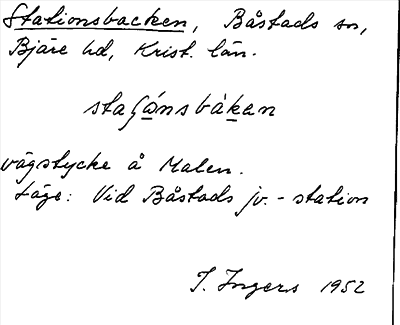 Stationsbacken, Båstads sn,
Bjäre hd, Krist. län.
staʃónsbàkan
vägstycke å Malen.
Läge: Vid Båstads jv.-station
I. Ingers 1952